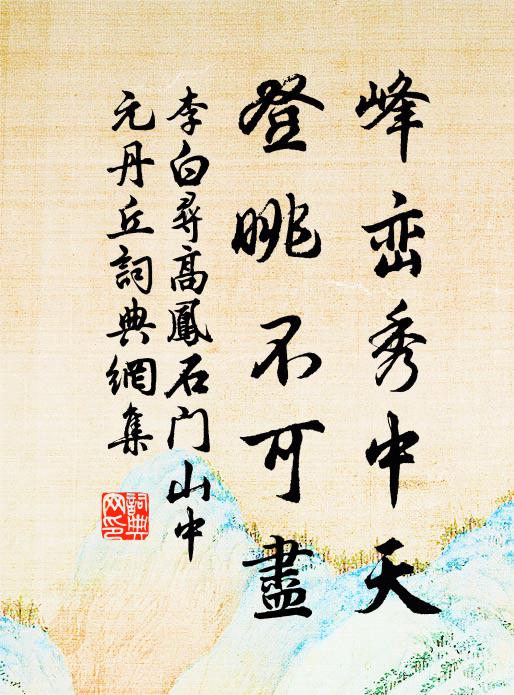 峰峦秀中天
登眺不可盡
李白尋高鳳石门山中
元丹丘詞典網集
詞典
网印